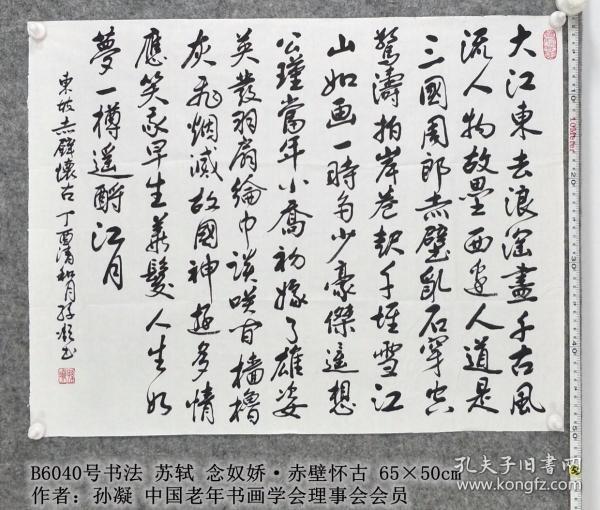 大江東去浪淘盡千古風
流人物故壘西边人道是
三國周郎赤壁亂石穿空
驚濤拍岸卷起千堆雪江
山如画一時多少豪傑遥想
公瑾當年小喬初嫁了雄姿
英發羽扇綸巾談笑间檣櫓
灰飛烟滅故國神遊多情
應笑我早生華髮人生如
夢一樽還酹江月
東坡赤壁懷古丁酉清和月孫凝书
B6040号书法 苏轼 念奴娇·赤壁怀古 65×50cm
作者：孙凝 中国老年书画学会理事会会员
孔夫子旧书网
www.kongfz.com